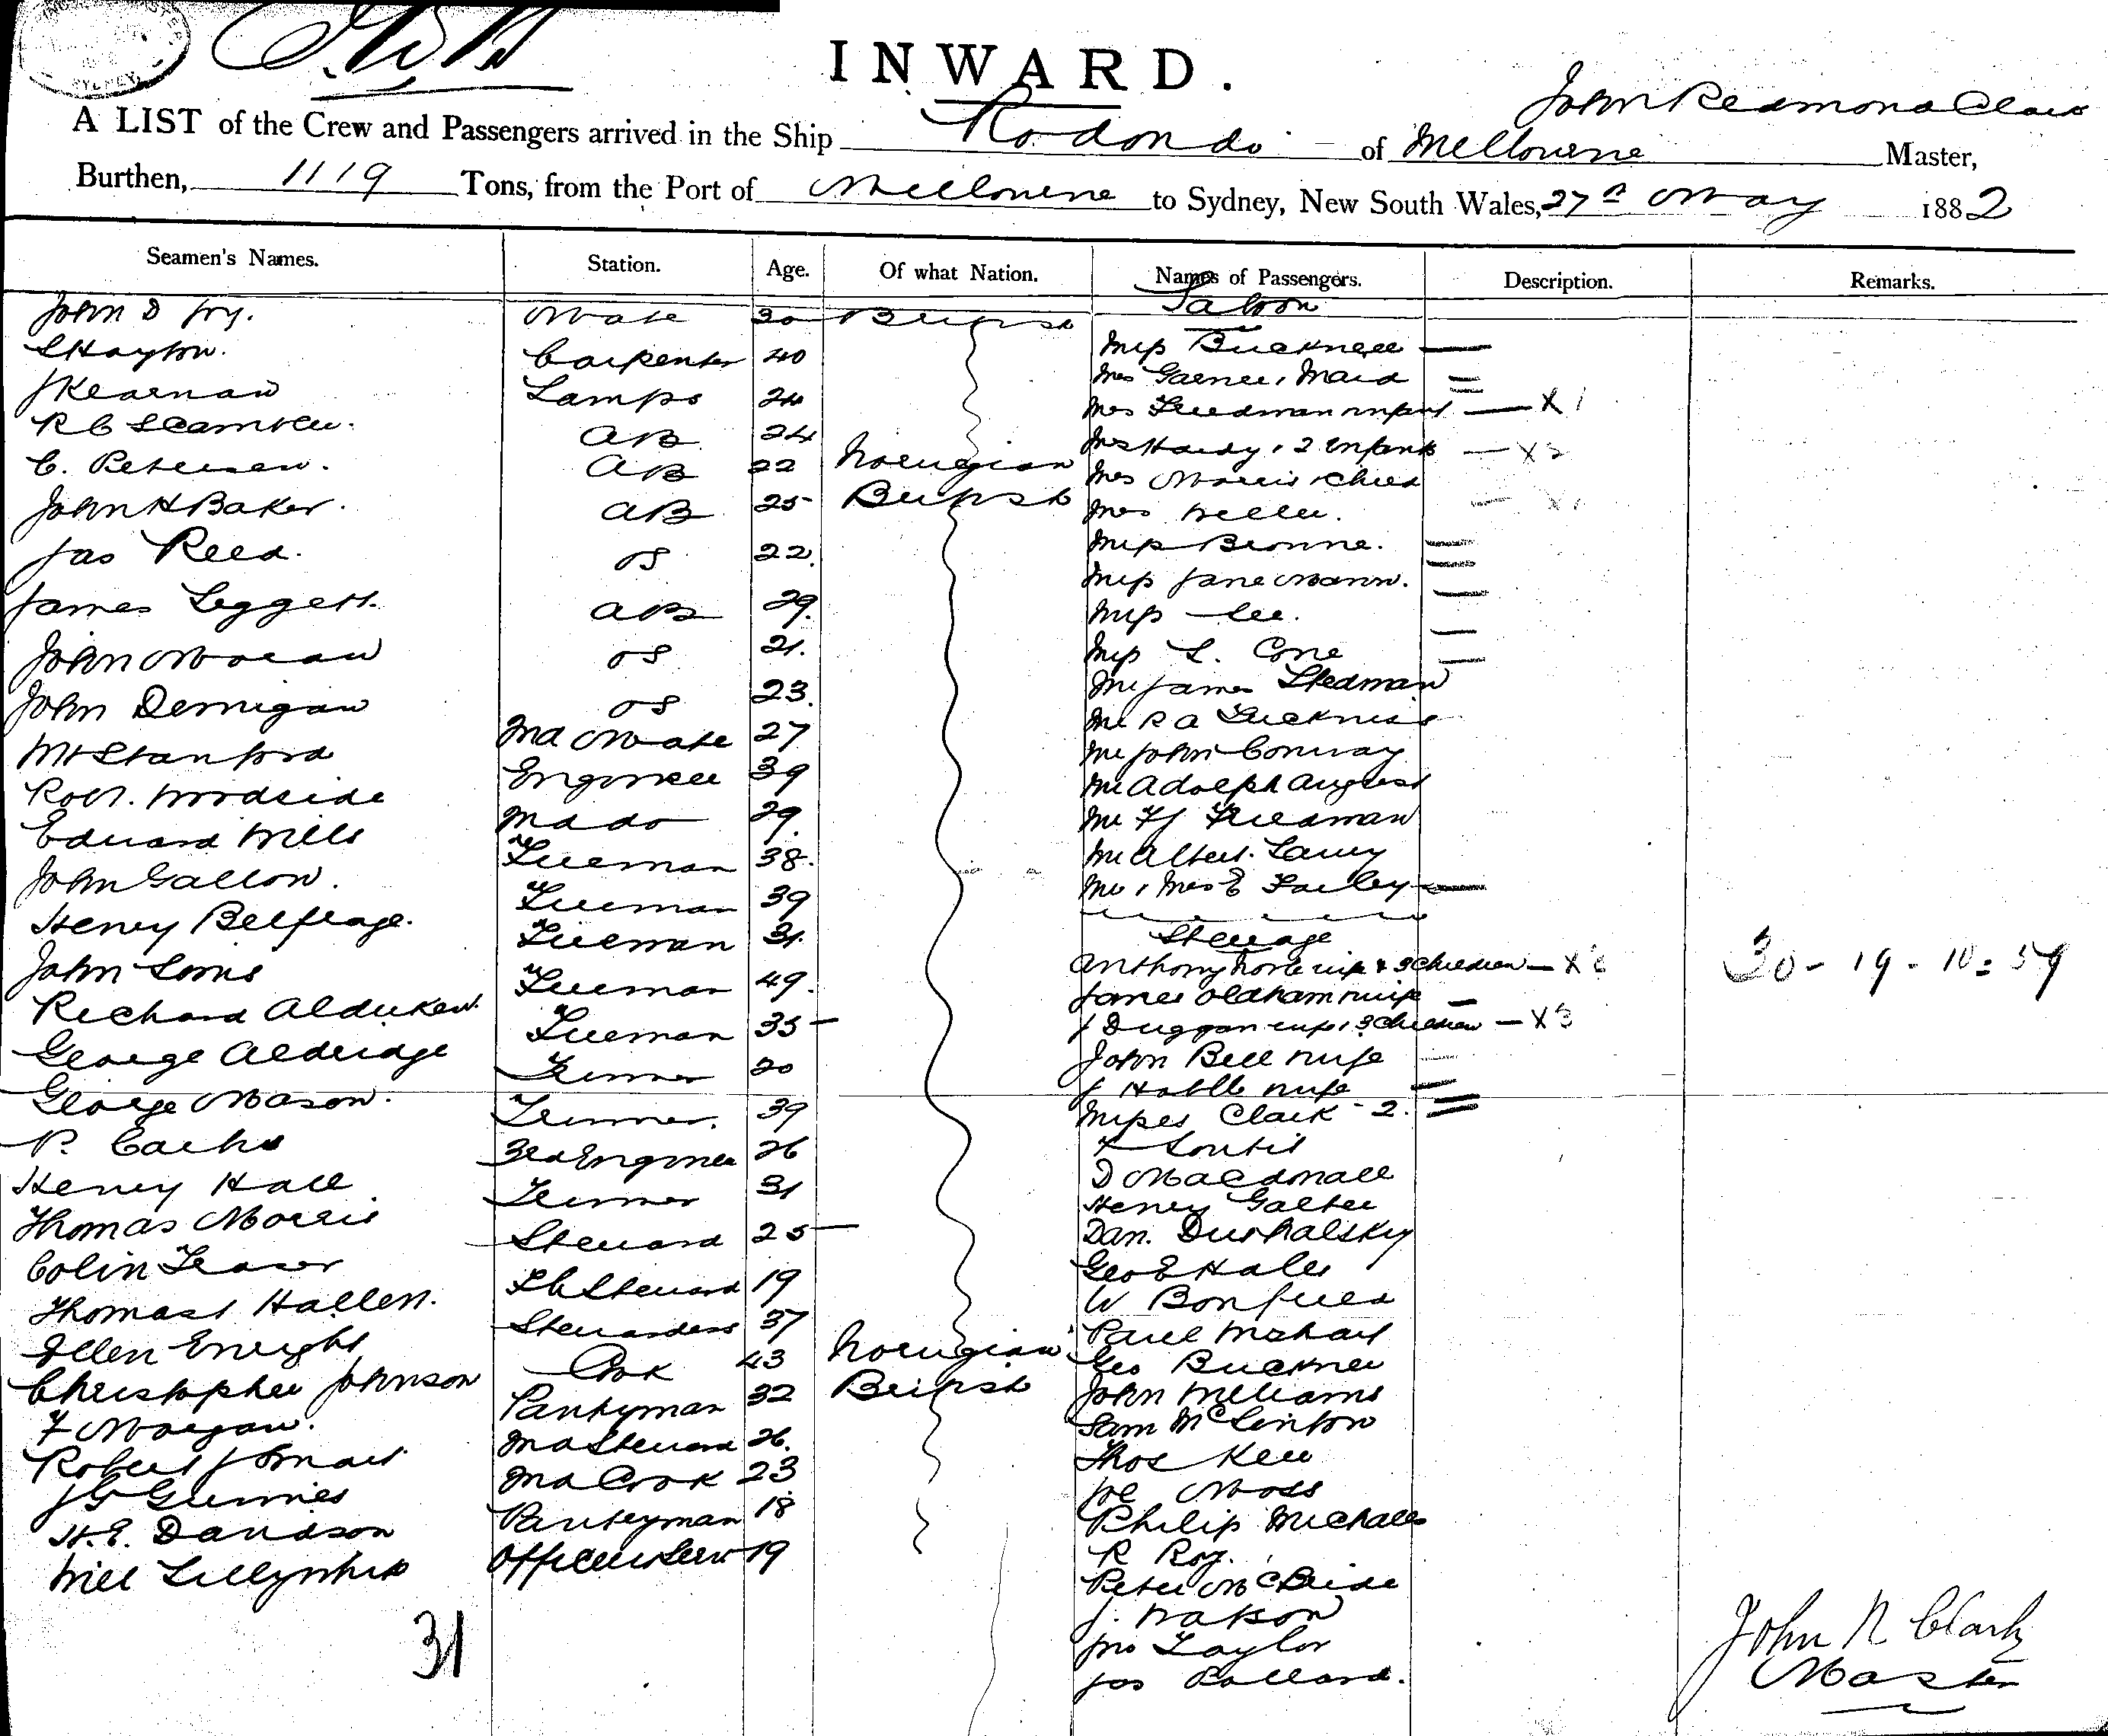 INWARD.
John Redmond Clark
A LIST of the Crew and Passengers arrived in the Ship Rodondo of Melbourne Master,
Burthen, 1119 Tons, from the Port of Melbourne to Sydney, New South Wales, 27th May 1882
Seamen's Names. Station. Age. Of what Nation. Names of Passengers. Description. Remarks.
Saloon
John D Fry. Mate 30 British
S Hayton. Carpenter 40 Miss Bucknell
J Kearnan Lamps 24 Mrs Garner, Maid
R C AB 24 Mrs Freedman infant X 1
C. Petersen. AB 22 Norwegian Mrs Hardy, 2 Infants X 2
John H Baker. AB 25 British Mrs Morris & Child X 1
Jas Reed. OS 22. Mrs Weller.
James Leggett. AB 29. Miss Browne.
John Moran OS 21. Miss Jane Mann.
John Dernigan OS 23. Miss Lee.
Stanford 2nd Mate 27 Miss L. Cone
Robt. Woodside Engineer 39 Mr James Stedman
Edward Mills 2nd do 29. Mr R A
John Gallon. Fireman 38. Mr John Conway
Henry Belfrage. Fireman 39 Mr Adolph August
John Sims Fireman 31. Mr F J Freedman
Richard Fireman 49. Mr Albert
George Aldridge Fireman 35 Mr, Mrs E Farley
Steerage
George Mason. Trimmer 20 Anthony wife & 3 Children X 3
P. Trimmer. 39 James Oldham wife
Henry Hall 3rd Engineer 26 J Duggan wife, 3 Children X 3
Thomas Morris Trimmer 31 John Bell wife
Colin Fraser Steward 25 J wife
Thomas Hallen. F C Steward 19 Misses Clark - 2.
Ellen Enright Stewardess 37
Christopher Johnson Cook 43 Norwegian D Macdonall
F Morgan. Pantryman 32 British Henry Galter
Robert J Smart 2nd Steward 26. Dan. Dushalsky
J G 2nd Cook 23 Geo E Hales
H. E. Davidson Pantryman 18 W Bonfield
Will Officers Serv 19 Paul
Geo Buckner
John Williams
Sam McLinton
Thos Kerr
Joe Moss
Philip Michaels
R Roy.
Peter McBride
J. Watson
Jno Taylor
Jas Pollard.
30 - 19 - 10 = 59
31
John R Clark
Master